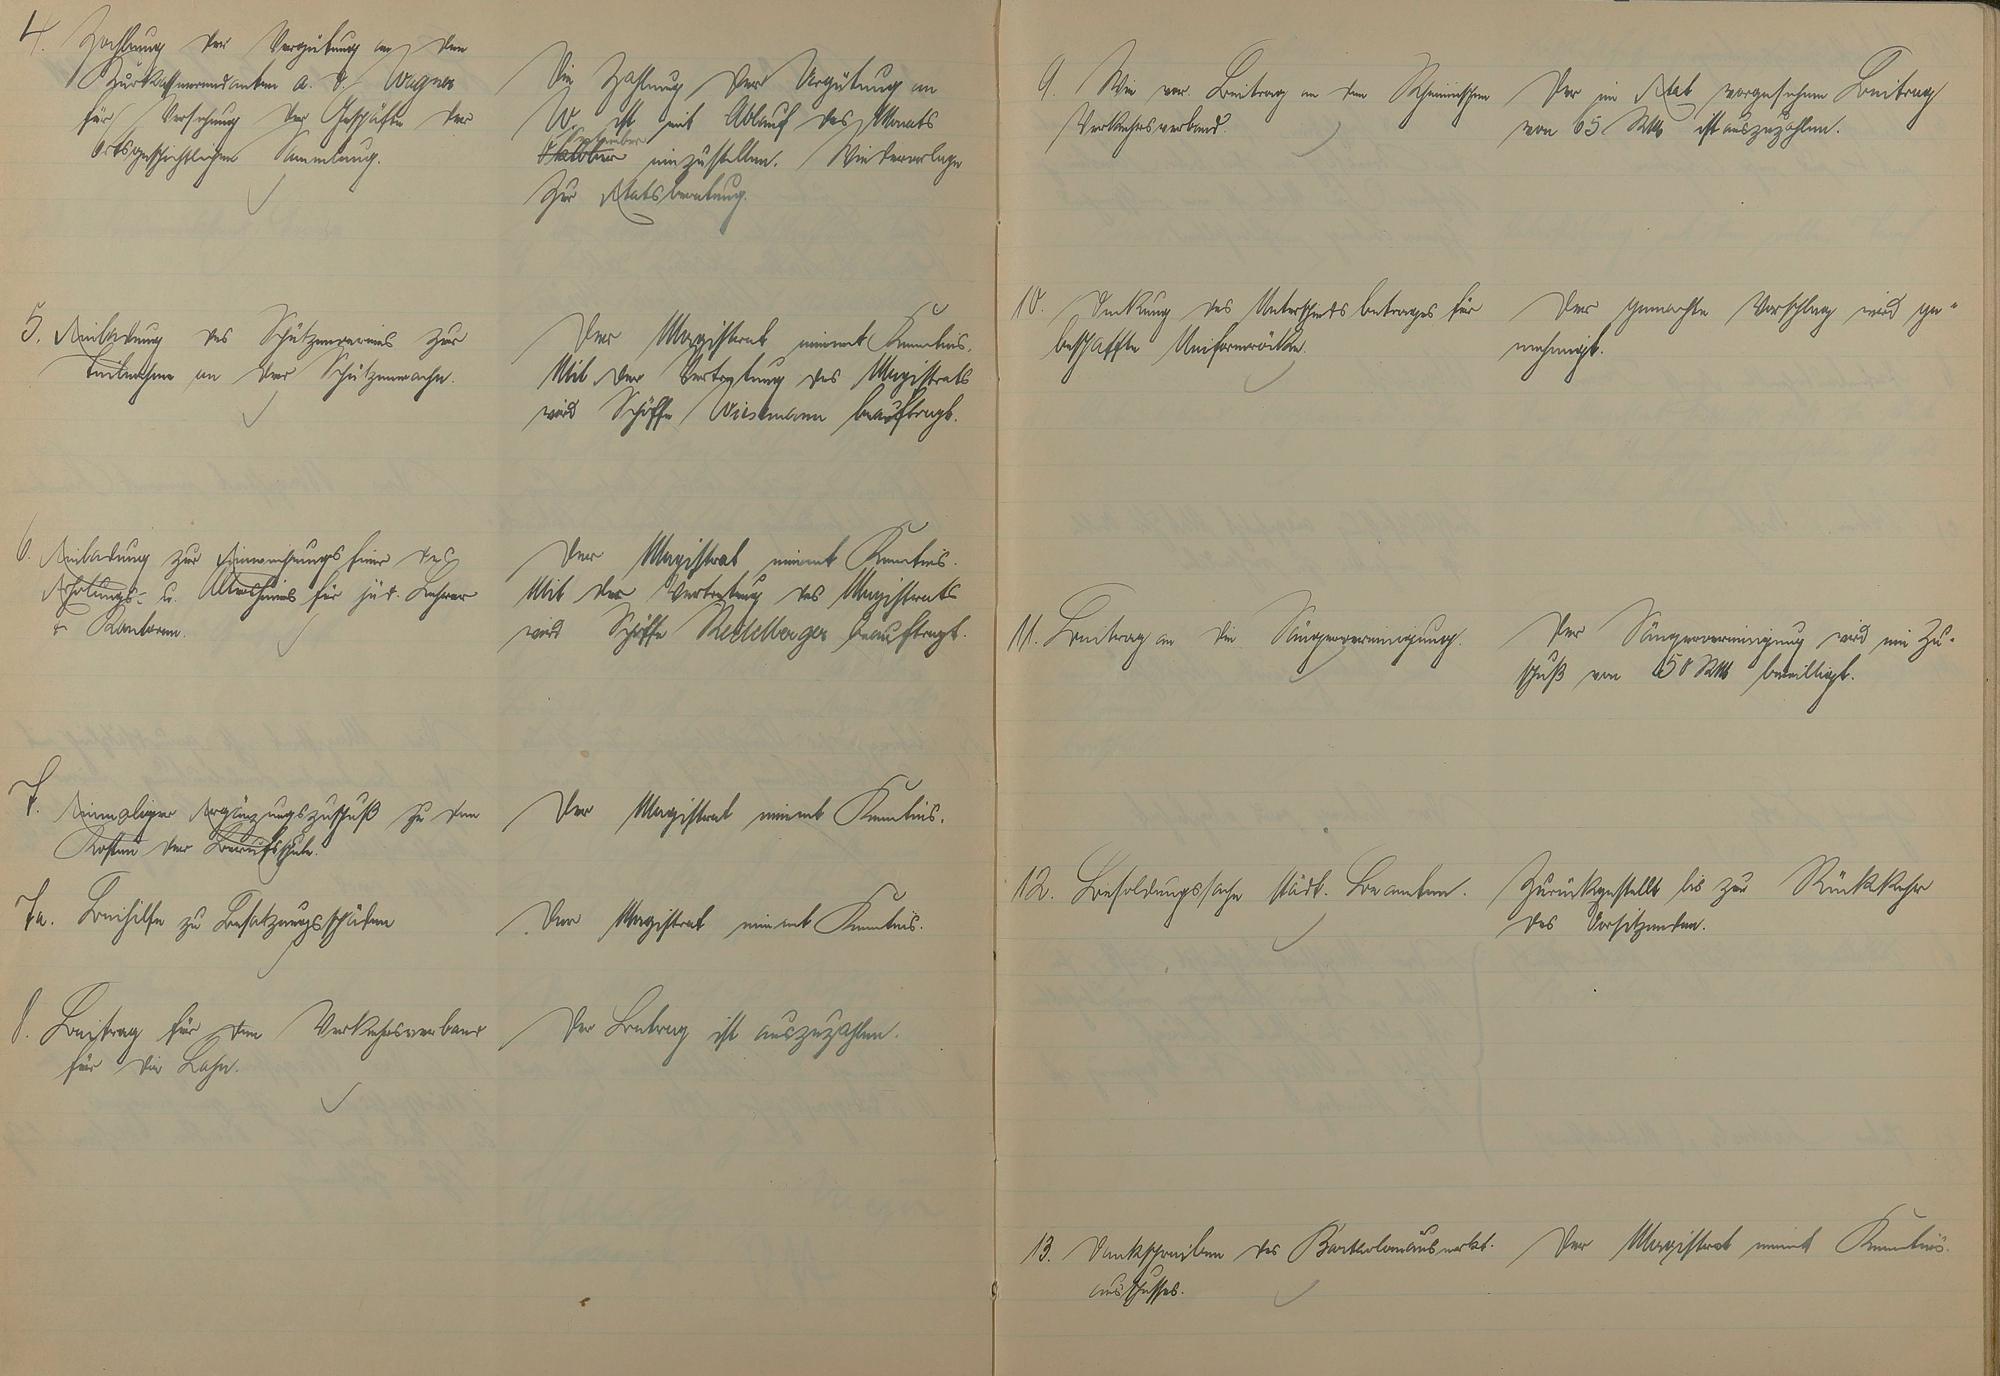 4. Zahlung der Vergütung an den
Kurkassenrendanten a. D. Wagner
für Versehung der Geschäfte der
Ortsgeschichtlichen Sammlung.
Die Zahlung der Vergütung an
W. ist mit Ablauf des Monats
September
Oktober einzustellen. Wiedervorlage
zur Etatsberatung.
5. Einladung des Schützenvereins zur
Teilnahme an der Schützenwache.
Der Magistrat nimmt Kenntnis.
Mit der Vertretung des Magistrats
wird Schöffe Wiesmann beauftragt.
6. Einladung zur Einweihungsfeier des
Erholungs- u. Altersheims für jüd. Lehrer
u. Kantoren.
Der Magistrat nimmt Kenntnis.
Mit der Vertretung des Magistrats
wird Schöffe Reckelberger beauftragt.
7. Einmaliger Ergänzungszuschuß zu den
Kosten der Berufsschule.
Der Magistrat nimmt Kenntnis.
7a. Beihilfe zu Besatzungsschäden
Der Magistrat nimmt Kenntnis.
8. Beitrag für den Verkehrsverband
für die Lahn.
Der Beitrag ist auszuzahlen.
9. Wie vor. Beitrag an den Rheinischen
Verkehrsverband.
Der im Etat vorgesehene Beitrag
von 65 RMk ist auszuzahlen.
10. Deckung des Unterschiedsbetrages für
beschaffte Uniformröcke.
Der gemachte Vorschlag wird ge-
nehmigt.
11. Beitrag an die Sängervereinigung.
Der Sängervereinigung wird ein Zu-
schuß von 50 RMk bewilligt.
12. Besoldungssache städt. Beamten.
Zurückgestellt bis zur Rückkehr
des Vorsitzenden.
13. Dankschreiben des Bartholomäusmarkt-
ausschusses.
Der Magistrat nimmt Kenntnis.